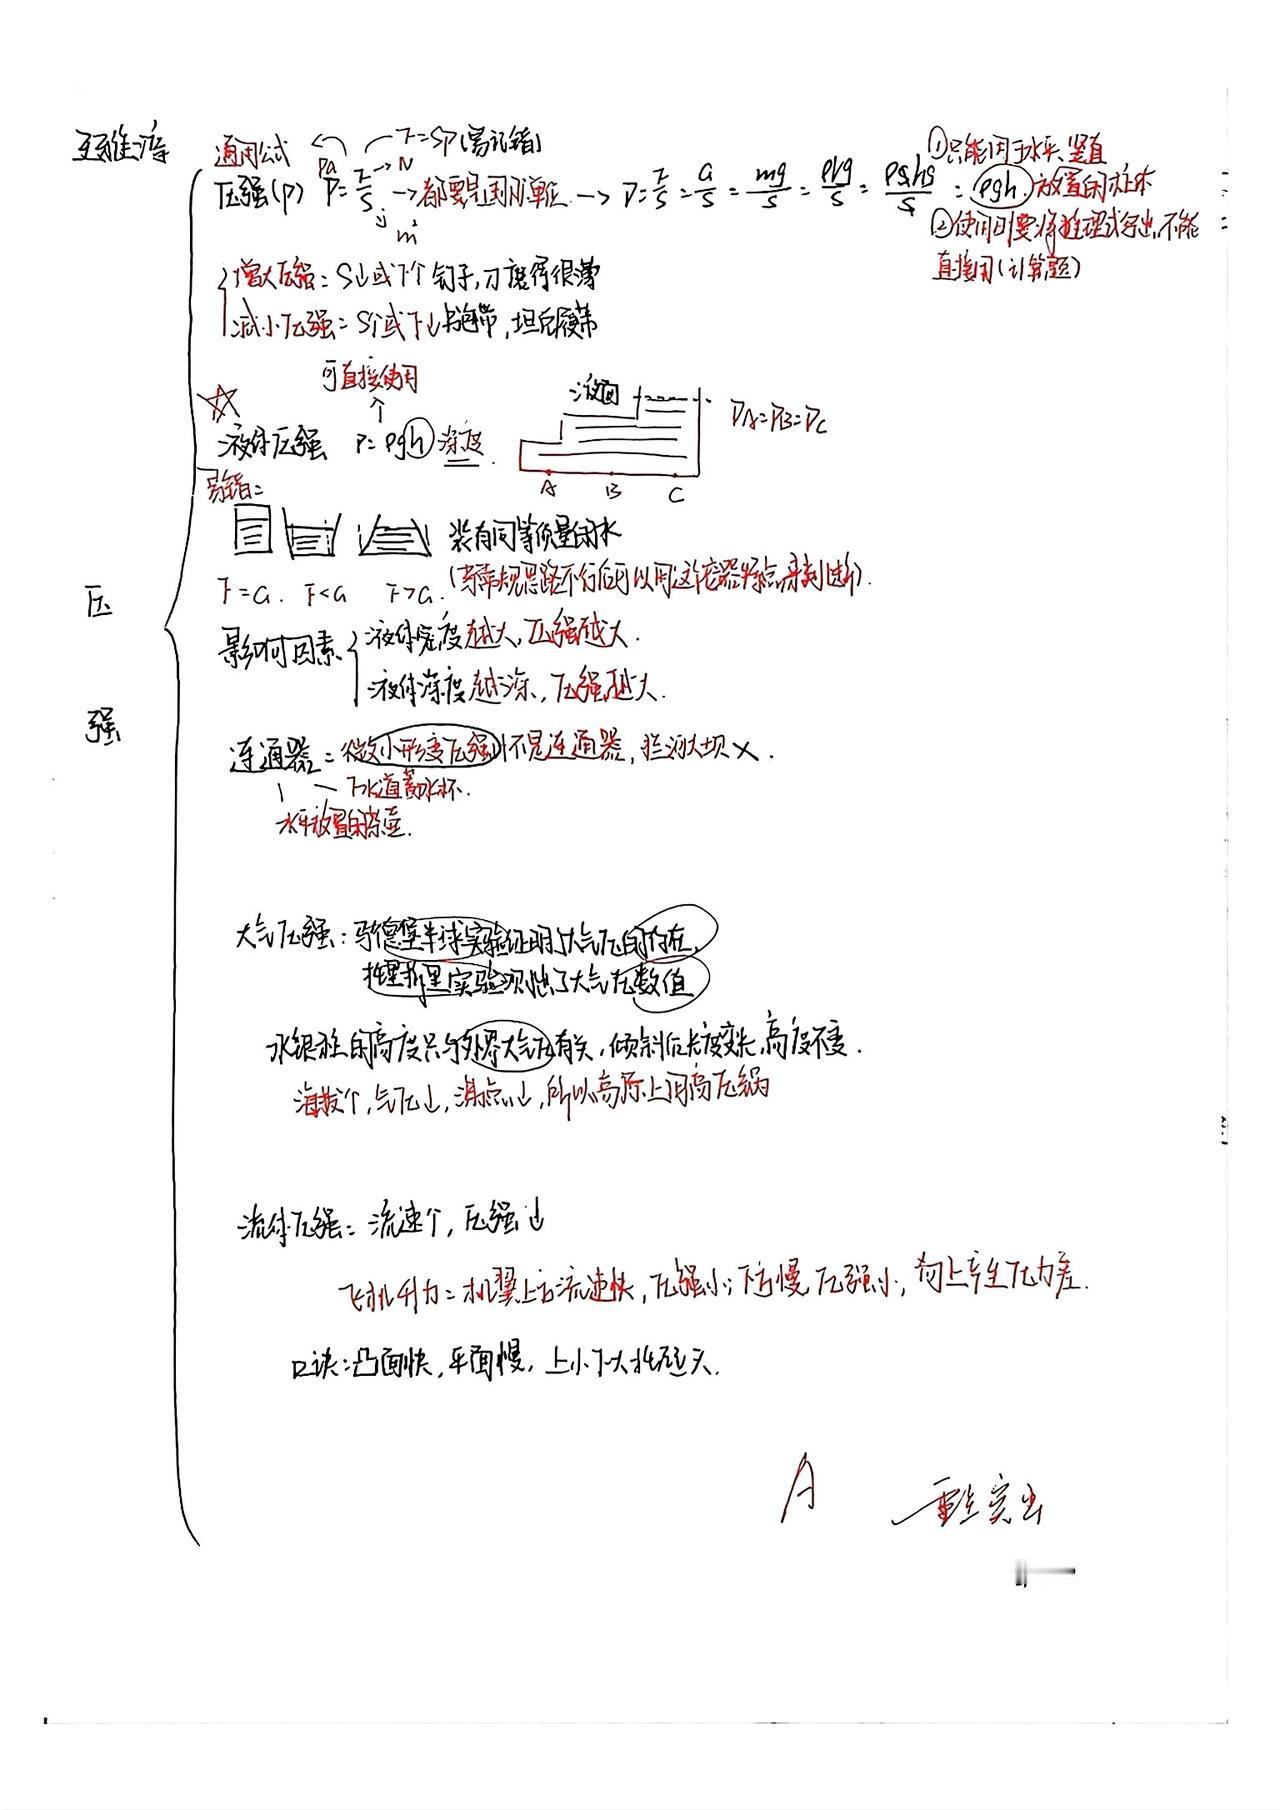 通用公式 F=SP(易记错)
Pa
压强(P) P=F/S →N →都要是国际单位 → P=F/S=G/S=mg/S=ρVg/S=ρShg/S=ρgh ①只能用于水平、竖直
放置的柱体
m²
②使用时要将推理式写出,不能
直接用(计算题)
增大压强:S↓或F↑ 钉子,刀磨得很薄
减小压强:S↑或F↓ 书包带,坦克履带
可直接使用
液体压强 P=ρgh 深度
液面
PA=PB=PC
A B C
易错:
装有同等质量的水
F=G. F<G F>G.
影响因素
液体密度越大,压强越大.
液体深度越深,压强越大.
连通器: 微小形变压强计不是连通器,拦河大坝×.
下水道蓄水杯.
水平放置的茶壶.
压
强
大气压强:马德堡半球实验证明了大气压的存在,
托里拆里实验测出了大气压数值
水银柱的高度只与外界大气压有关,倾斜后长度变长,高度不变.
海拔↑,气压↓,沸点↓,所以高原上用高压锅
流体压强:流速↑,压强↓
飞机升力:机翼上方流速快,压强小;下方慢压强小;向上产生压力差.
口诀:凸面快,平面慢,上小下大托起飞天.
A 重点突出